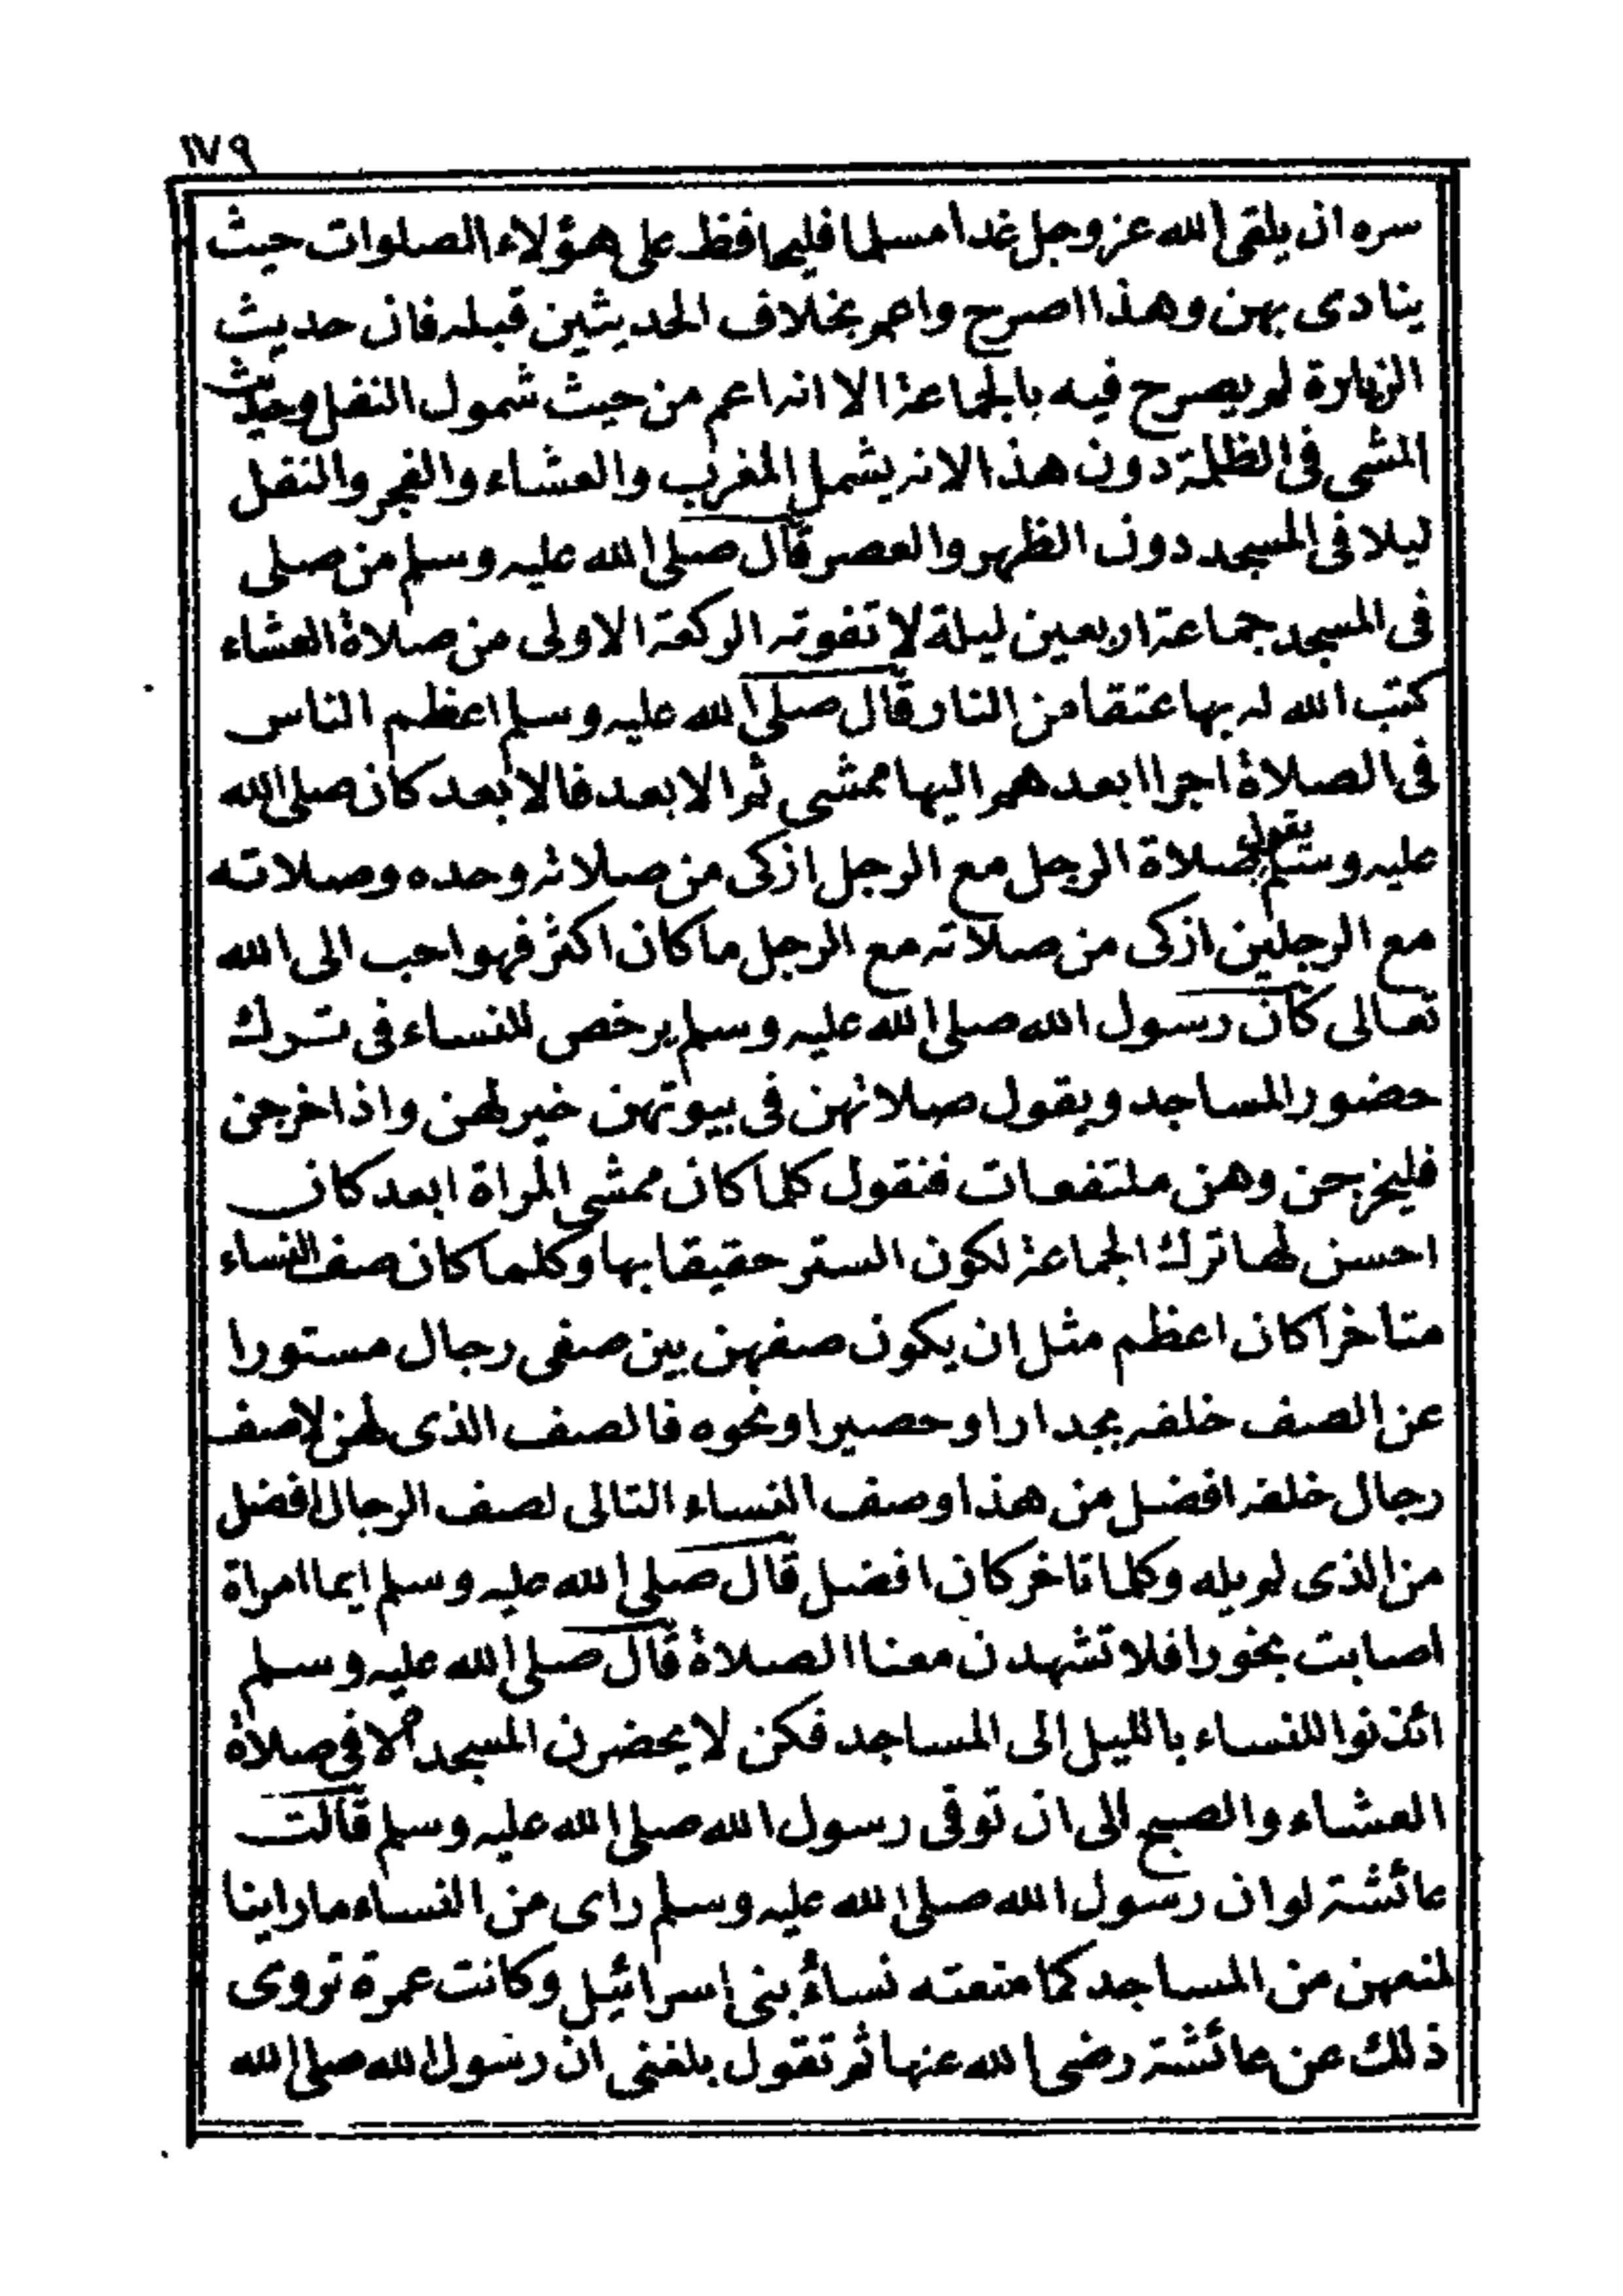 ١٧٩
سره ان يلقى الله عز وجل غدا مسلما فليحافظ على هؤلاء الصلوات حيث
ينادى بهن وهذا اصرح واعم بخلاف الحديثين قبله فان حديث
الزيارة لم يصرح فيه بالجماعة الا انه اعم من حيث شمول النفل وحديث
المشى فى الظلمة دون هذا لانه يشمل المغرب والعشاء والفجر والنفل
ليلا فى المسجد دون الظهر والعصر قال صلى الله عليه وسلم من صلى
فى المسجد جماعة اربعين ليلة لا تفوته الركعة الاولى من صلاة العشاء
كتب الله له بها عتقا من النار قال صلى الله عليه وسلم اعظم الناس
فى الصلاة اجرا ابعدهم اليها ممشى ثم الابعد فالابعد كان صلى الله
عليه وسلم يقول صلاة الرجل مع الرجل ازكى من صلاته وحده وصلاته
مع الرجلين ازكى من صلاته مع الرجل ما كان اكثر فهو احب الى الله
تعالى كان رسول الله صلى الله عليه وسلم يرخص للنساء فى ترك
حضور المساجد ويقول صلاتهن فى بيوتهن خير لهن واذا خرجن
فليخرجن وهن ملتفعات فنقول كلما كان ممشى المراة ابعد كان
احسن لها ترك الجماعة لكون الستر حقيقا بها وكلما كان صف النساء
متاخرا كان اعظم مثل ان يكون صفهن بين صفى رجال مستورا
عن الصف خلفه بجدار او حصير او نحوه فالصف الذى لهن لاصف
رجال خلفه افضل من هذا وصف النساء التالى لصف الرجال افضل
من الذى لم يله وكلما تاخر كان افضل قال صلى الله عليه وسلم ايما امراة
اصابت بخورا فلا تشهدن معنا الصلاة قال صلى الله عليه وسلم
ائذنوا للنساء بالليل الى المساجد فكن لا يحضرن المسجد الا فى صلاة
العشاء والصبح الى ان توفى رسول الله صلى الله عليه وسلم قالت
عائشة لو ان رسول الله صلى الله عليه وسلم راى من النساء ما راينا
لمنعهن من المساجد كما منعته نساء بنى اسرائيل وكانت عمرة تروى
ذلك عن عائشة رضى الله عنها ثم تقول بلغنى ان رسول الله صلى الله